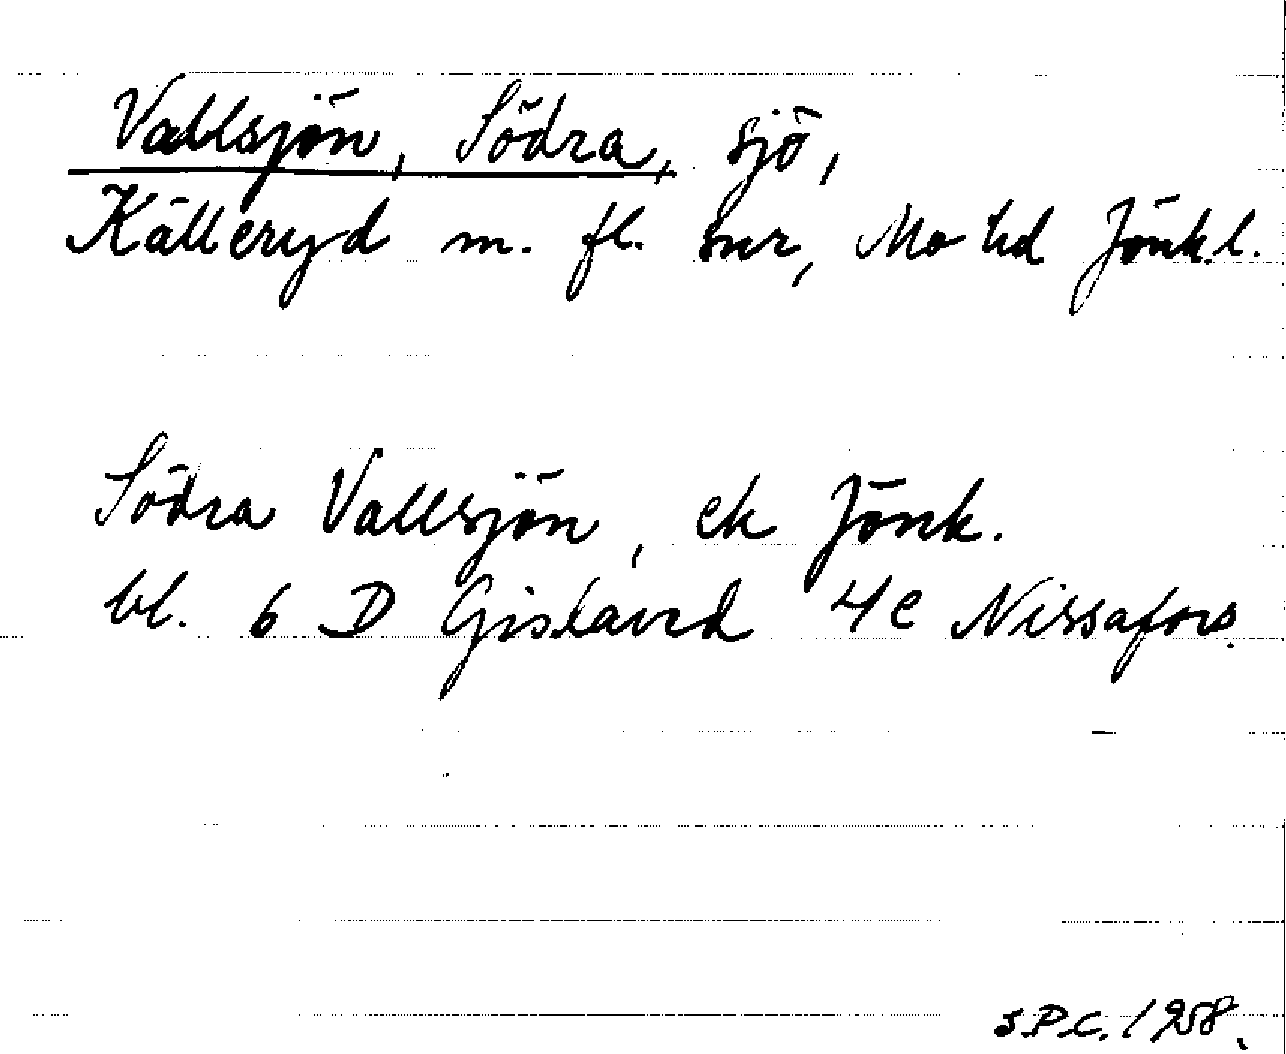 Vallsjön, Södra, sjö,
Källeryd m. fl. snr, Mo hd Jönk.l.
Södra Vallsjön, ek Jönk.
bl. 6 D Gislaved 4c Nissafors.
S.P.C. 1958.